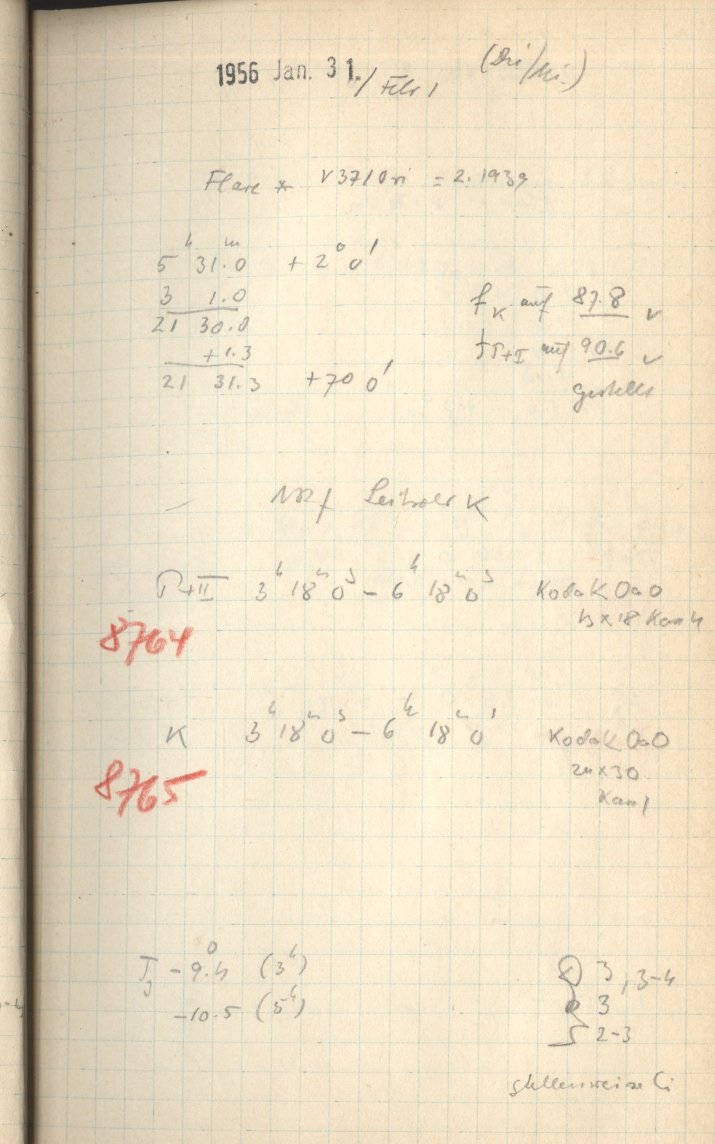 1956 Jan. 31./Febr 1
Flare * V371 Ori = 2.1939
5h 31.0m + 2° 0'
3 1.0
21 30.0
+1.3
21 31.3 +70 0'
fK auf 87.8 ✓
fT+II auf 90.6 ✓
gestellt
K
T+II 3h 18m 0s – 6h 18m 0s Kodak OaO
13x18 Kam 4
8764
K 3h 18m 0s – 6h 18m 0s Kodak OaO
24x30
Kam 1
8765
TJ –9.4° (3h)
–10.5 (5h)
3, 3–4
3
2–3
stellenweise Ci